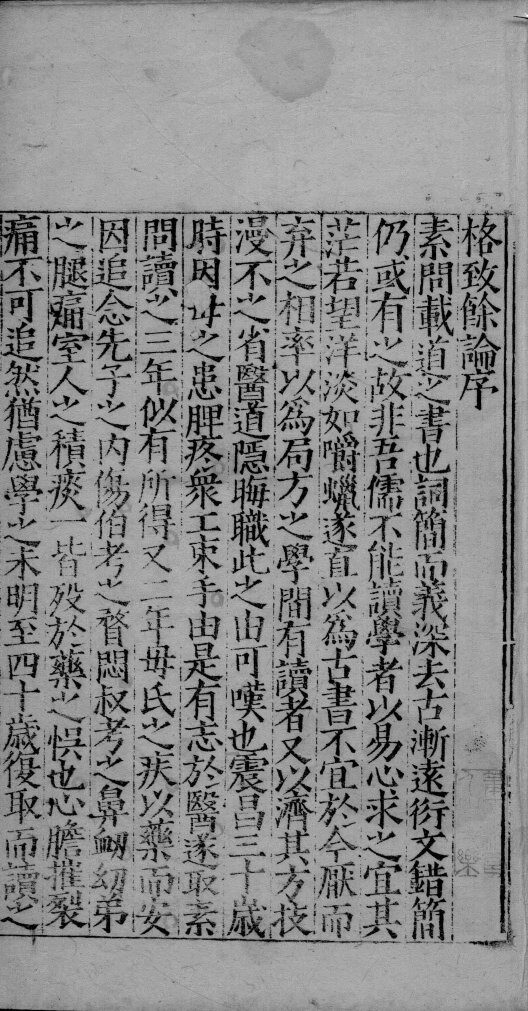 格致餘論序
素問載道之書也詞簡而義深去古漸遠衍文錯簡
仍或有之故非吾儒不能讀學者以易心求之宜其
茫若望洋淡如嚼蠟遂直以為古書不宜於今厭而
弃之相率以爲局方之學間有讀者又以濟其方技
漫不之省醫道隱晦職此之由可嘆也震昌三十歲
時因母之患脾疼衆工束手由是有志於醫遂取素
問讀之三年似有所得又二年母氏之疾以藥而安
因追念先子之内傷伯考之瞀悶叔考之鼻衄幼弟
之腿痛室人之積痰一皆殁於藥之悞也心膽摧裂
痛不可追然猶慮學之未明至四十歲復取而讀之